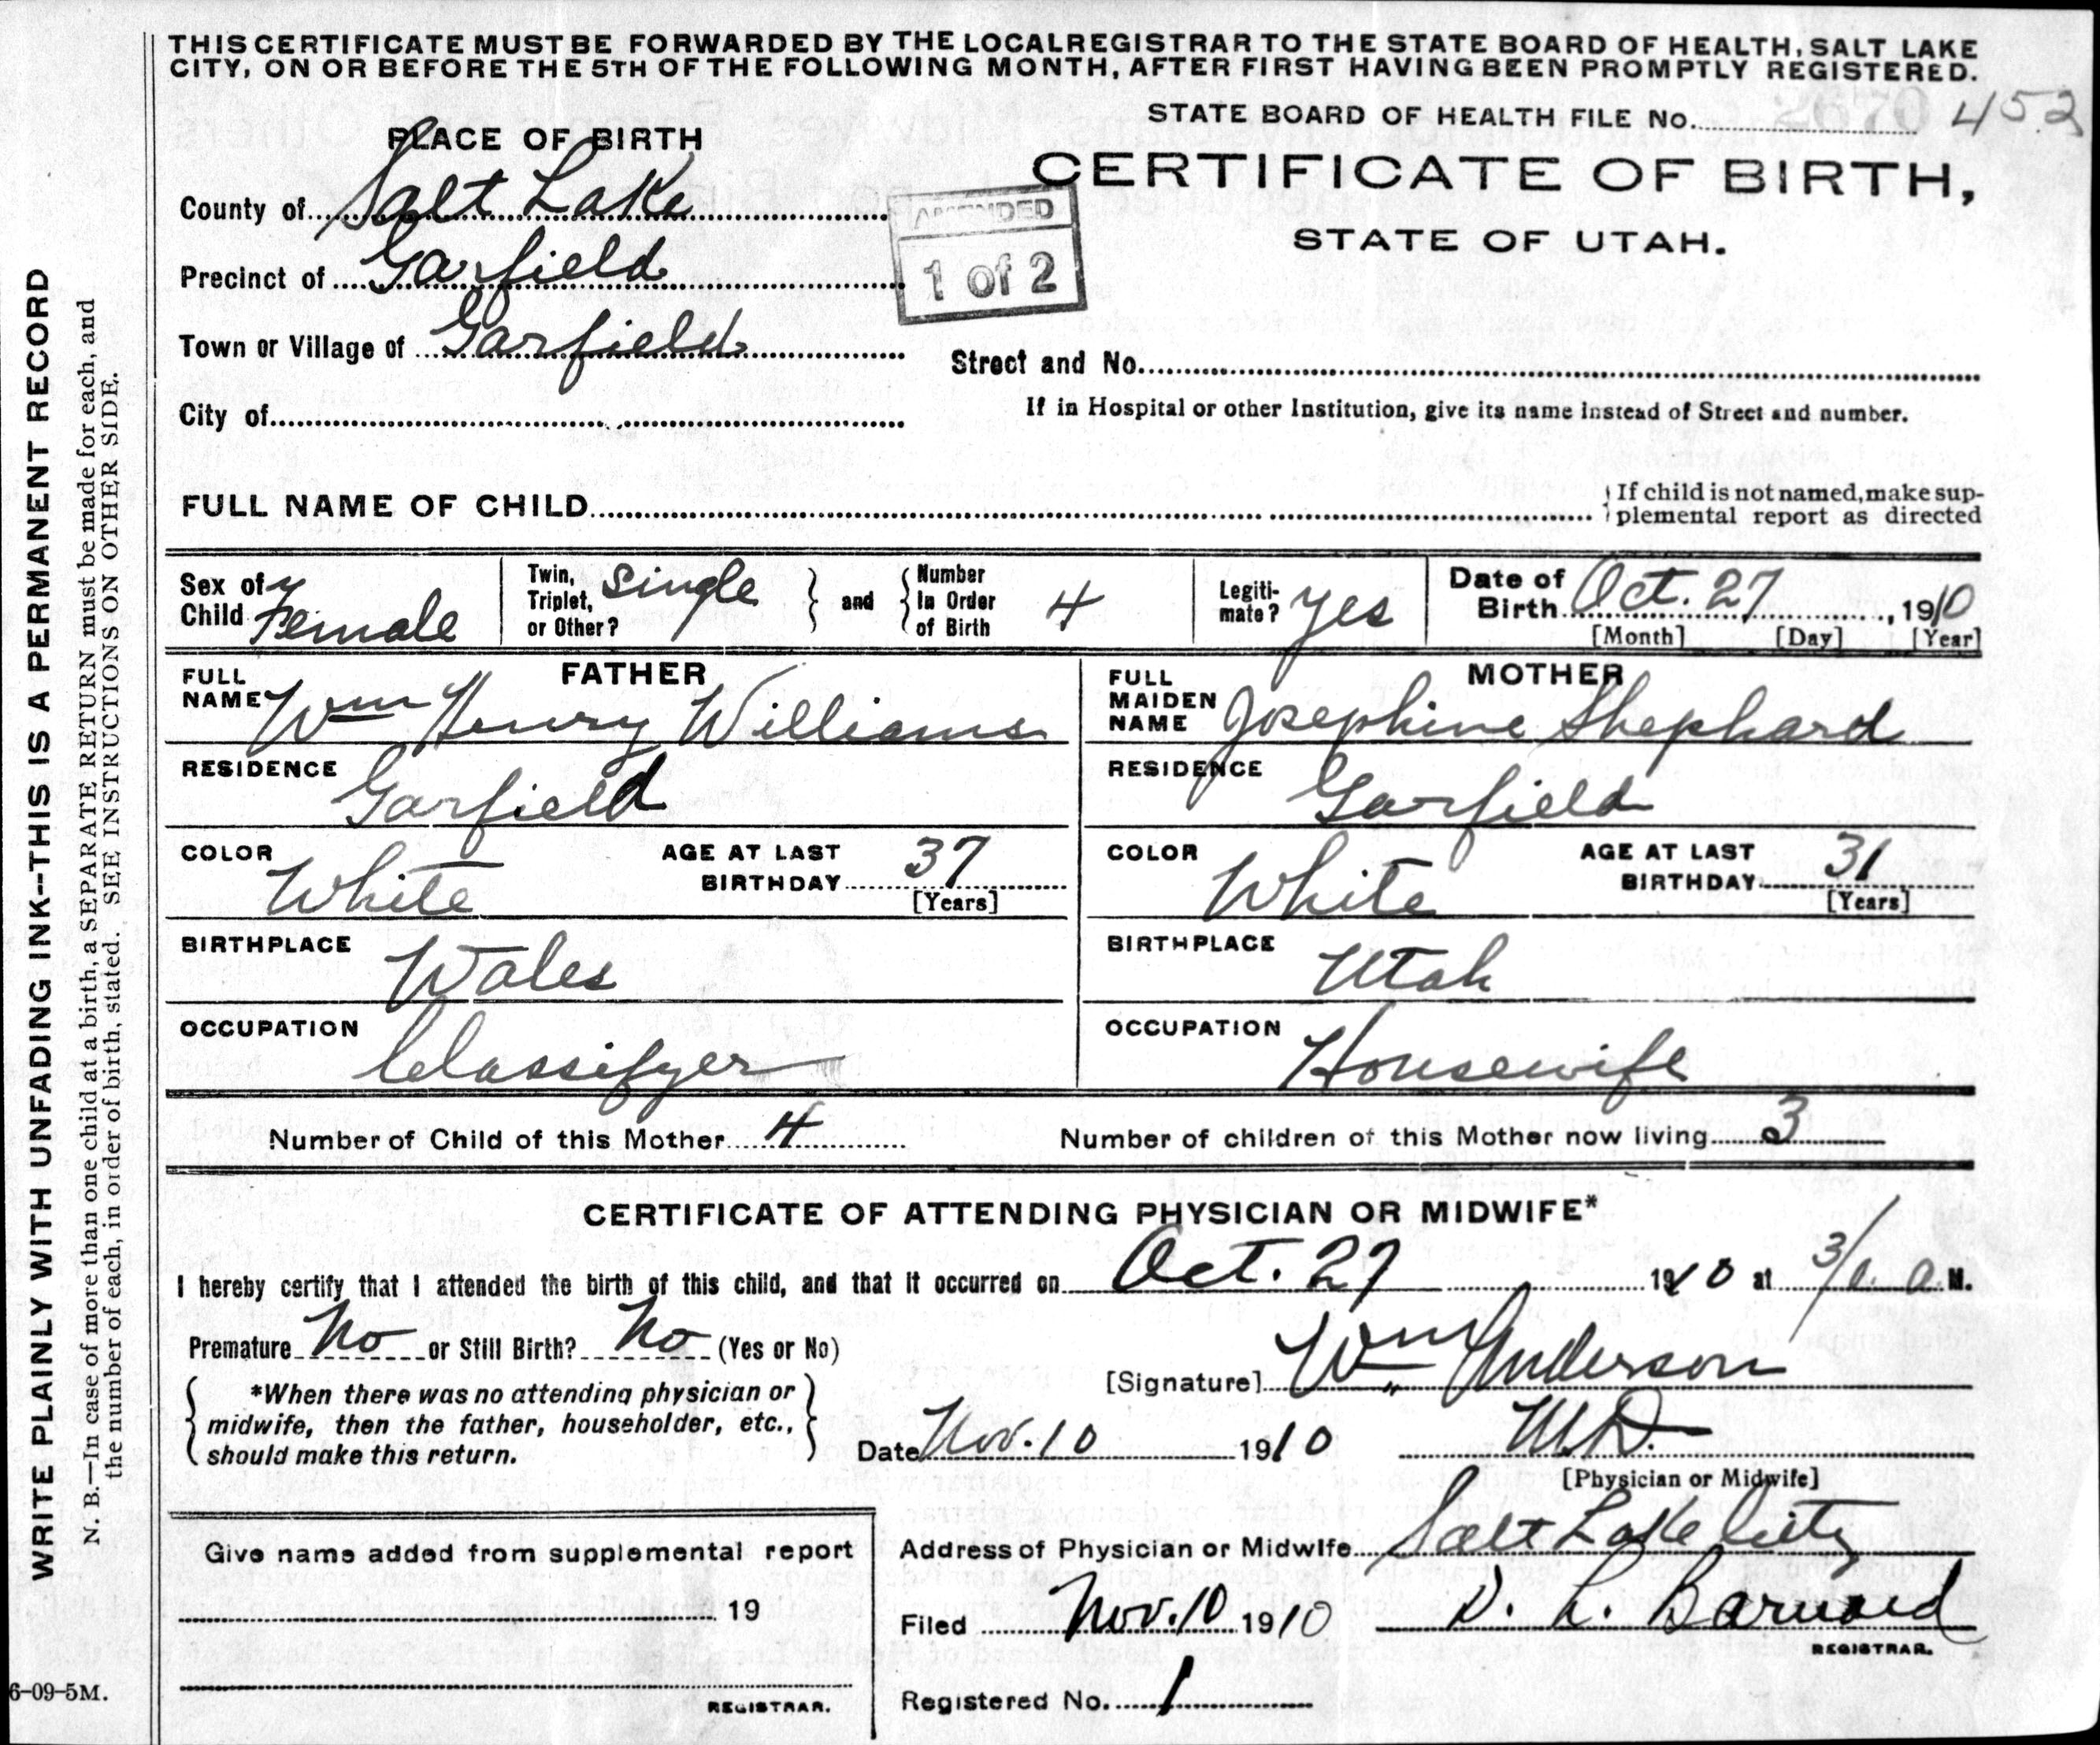 THIS CERTIFICATE MUST BE FORWARDED BY THE LOCAL REGISTRAR TO THE STATE BOARD OF HEALTH, SALT LAKE
CITY, ON OR BEFORE THE 5TH OF THE FOLLOWING MONTH, AFTER FIRST HAVING BEEN PROMPTLY REGISTERED.
STATE BOARD OF HEALTH FILE No. 452
PLACE OF BIRTH
CERTIFICATE OF BIRTH,
STATE OF UTAH.
County of Salt Lake
Precinct of Garfield
Town or Village of Garfield
City of
AMENDED
1 of 2
Street and No.
If in Hospital or other Institution, give its name instead of Street and number.
FULL NAME OF CHILD
If child is not named, make sup-
plemental report as directed
Sex of Child Female
Twin, Triplet, or Other? Single
and
Number In Order of Birth 4
Legiti-mate? Yes
Date of Birth Oct. 27, 1910
[Month] [Day] [Year]
FATHER
FULL NAME Wm Henry Williams
RESIDENCE Garfield
COLOR White
AGE AT LAST BIRTHDAY 37
[Years]
BIRTHPLACE Wales
OCCUPATION Classifyer
MOTHER
FULL MAIDEN NAME Josephine Shephard
RESIDENCE Garfield
COLOR White
AGE AT LAST BIRTHDAY 31
[Years]
BIRTHPLACE Utah
OCCUPATION Housewife
Number of Child of this Mother 4
Number of children of this Mother now living 3
CERTIFICATE OF ATTENDING PHYSICIAN OR MIDWIFE*
I hereby certify that I attended the birth of this child, and that it occurred on Oct. 27 1910 at 3 a. M.
Premature No or Still Birth? No (Yes or No)
*When there was no attending physician or
midwife, then the father, householder, etc.,
should make this return.
[Signature] Wm Anderson
Date Nov. 10 1910 M.D.
[Physician or Midwife]
Address of Physician or Midwife Salt Lake City
Filed Nov. 10 1910 D. L. Barnard
REGISTRAR.
Registered No. 1
Give name added from supplemental report
19
REGISTRAR.
WRITE PLAINLY WITH UNFADING INK--THIS IS A PERMANENT RECORD
N. B.—In case of more than one child at a birth, a SEPARATE RETURN must be made for each, and
the number of each, in order of birth, stated. SEE INSTRUCTIONS ON OTHER SIDE.
6-09-5M.